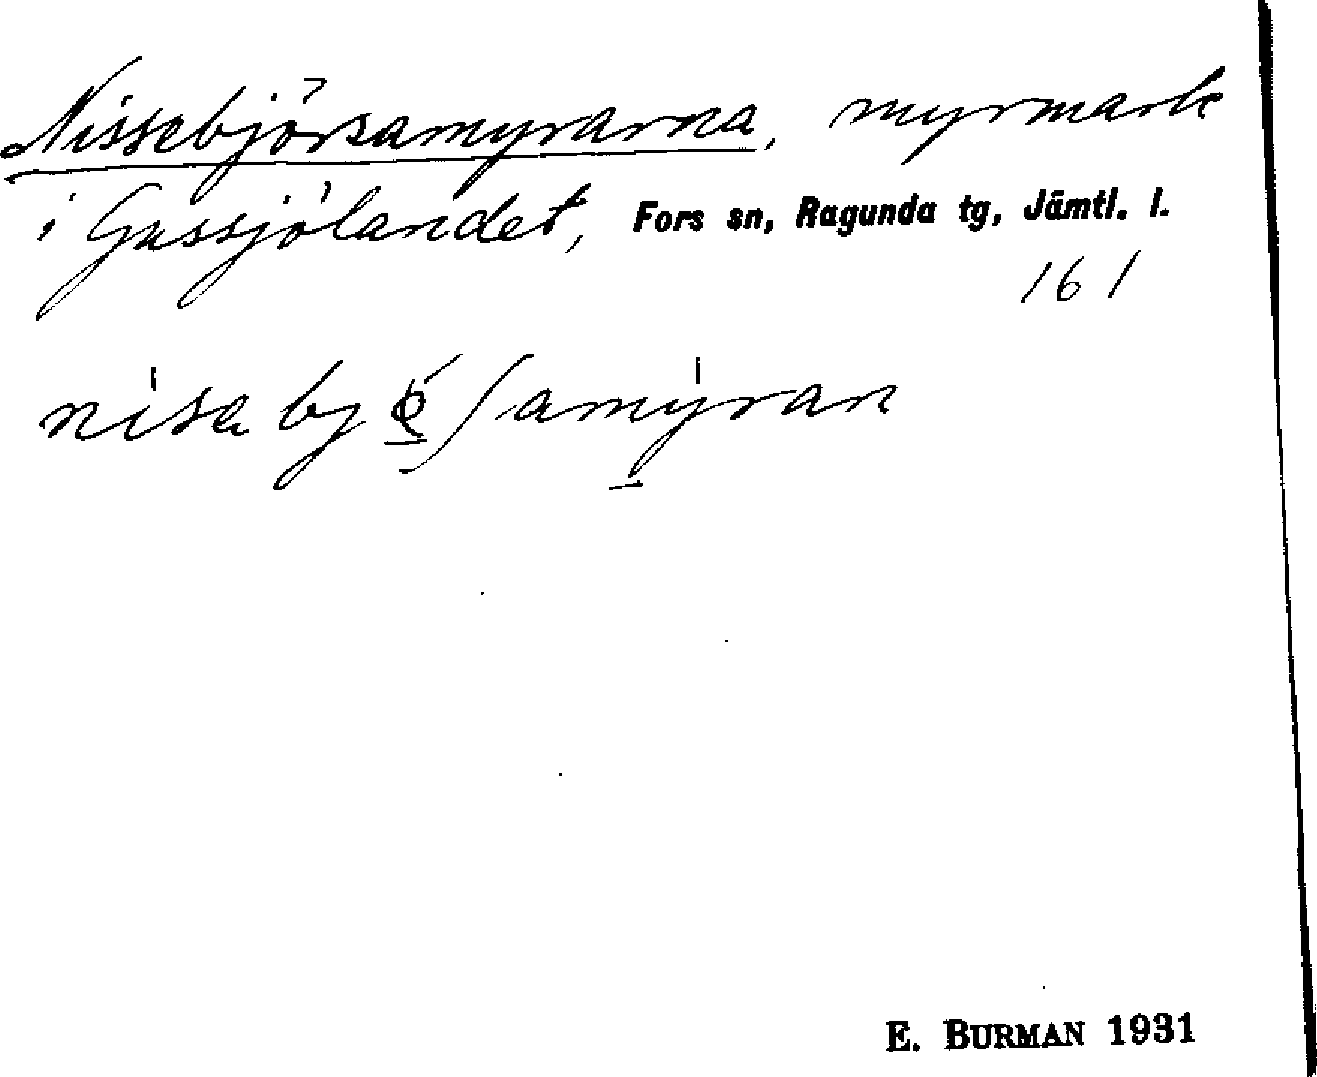 Nissebjörsamyrarna, myrmark
i Gussjölandet, Fors sn, Ragunda tg, Jämtl. l.
161
E. BURMAN 1931